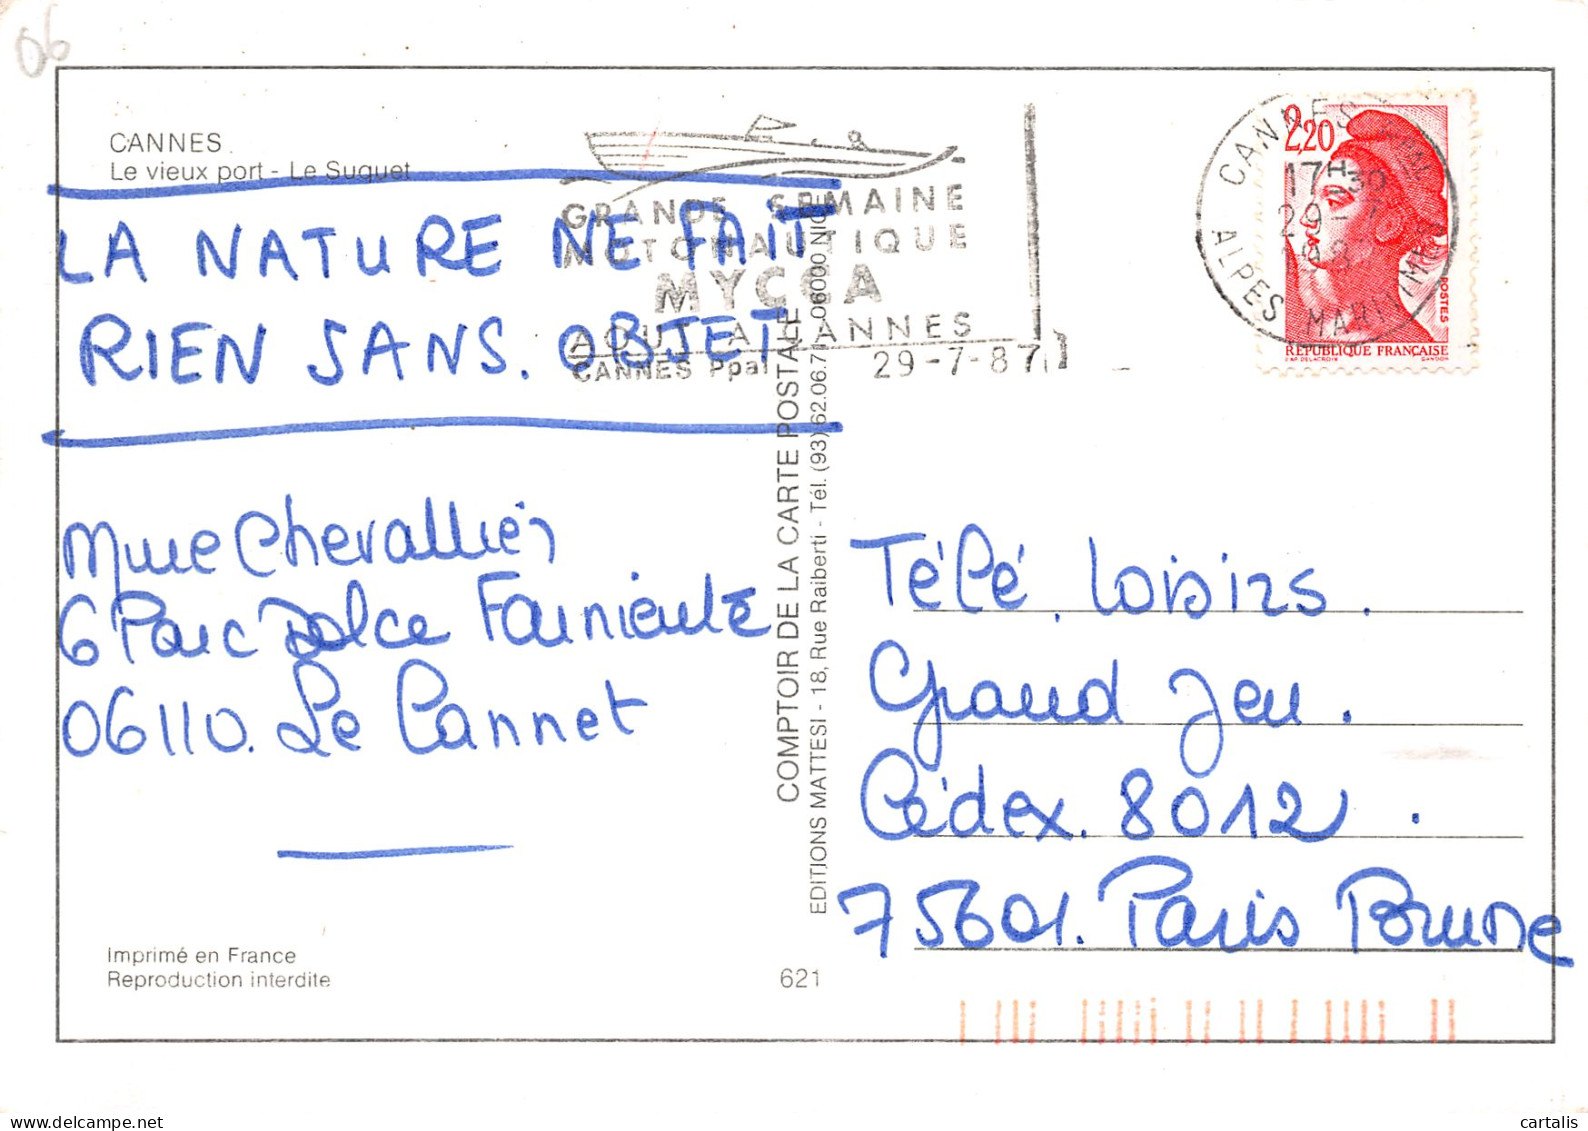 06
CANNES
Le vieux port - Le Suquet
LA NATURE NE FAIT
RIEN SANS. OBJET
Mme Chevallier
6 Parc Dolce Farniente
06110. Le Cannet
Imprimé en France
Reproduction interdite
GRANDE SEMAINE
MOTONAUTIQUE
MYCCA
AOUT A CANNES
CANNES Ppal 29-7-87
COMPTOIR DE LA CARTE POSTALE
EDITIONS MATTESI - 18, Rue Raiberti - Tél. (93) 62.06.71 06000 NICE
621
CANNES
17H30
29-7
ALPES MARITIMES
2,20
POSTES
RÉPUBLIQUE FRANÇAISE
D'AP. DELACROIX GANDON
Télé. Loisirs.
Grand Jeu.
Cédex. 8012.
75601. Paris Brune
cartalis